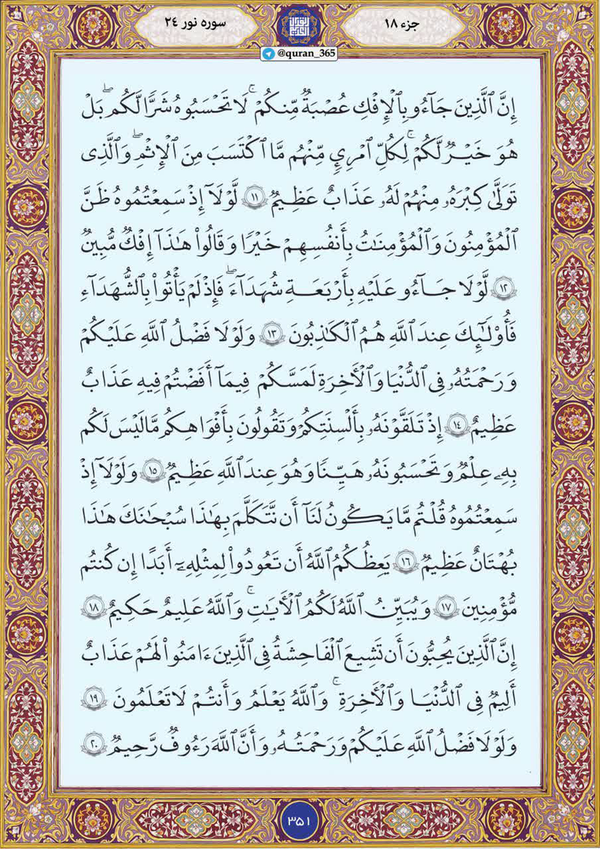 جزء ۱۸
سوره نور ۲۴
@quran_365
إِنَّ ٱلَّذِينَ جَآءُو بِٱلْإِفْكِ عُصْبَةٌ مِّنكُمْ ۚ لَا تَحْسَبُوهُ شَرًّا لَّكُم ۖ بَلْ
هُوَ خَيْرٌ لَّكُمْ ۚ لِكُلِّ ٱمْرِئٍ مِّنْهُم مَّا ٱكْتَسَبَ مِنَ ٱلْإِثْمِ ۚ وَٱلَّذِى
تَوَلَّىٰ كِبْرَهُۥ مِنْهُمْ لَهُۥ عَذَابٌ عَظِيمٌ ۱۱ لَّوْلَآ إِذْ سَمِعْتُمُوهُ ظَنَّ
ٱلْمُؤْمِنُونَ وَٱلْمُؤْمِنَاتُ بِأَنفُسِهِمْ خَيْرًا وَقَالُوا۟ هَٰذَآ إِفْكٌ مُّبِينٌ
۱۲ لَّوْلَا جَآءُو عَلَيْهِ بِأَرْبَعَةِ شُهَدَآءَ ۚ فَإِذْ لَمْ يَأْتُوا۟ بِٱلشُّهَدَآءِ
فَأُو۟لَٰٓئِكَ عِندَ ٱللَّهِ هُمُ ٱلْكَٰذِبُونَ ۱۳ وَلَوْلَا فَضْلُ ٱللَّهِ عَلَيْكُمْ
وَرَحْمَتُهُۥ فِى ٱلدُّنْيَا وَٱلْءَاخِرَةِ لَمَسَّكُمْ فِيمَآ أَفَضْتُمْ فِيهِ عَذَابٌ
عَظِيمٌ ۱۴ إِذْ تَلَقَّوْنَهُۥ بِأَلْسِنَتِكُمْ وَتَقُولُونَ بِأَفْوَاهِكُم مَّا لَيْسَ لَكُم
بِهِۦ عِلْمٌ وَتَحْسَبُونَهُۥ هَيِّنًا وَهُوَ عِندَ ٱللَّهِ عَظِيمٌ ۱۵ وَلَوْلَآ إِذْ
سَمِعْتُمُوهُ قُلْتُم مَّا يَكُونُ لَنَآ أَن نَّتَكَلَّمَ بِهَٰذَا سُبْحَٰنَكَ هَٰذَا
بُهْتَٰنٌ عَظِيمٌ ۱۶ يَعِظُكُمُ ٱللَّهُ أَن تَعُودُوا۟ لِمِثْلِهِۦٓ أَبَدًا إِن كُنتُم
مُّؤْمِنِينَ ۱۷ وَيُبَيِّنُ ٱللَّهُ لَكُمُ ٱلْءَايَٰتِ ۚ وَٱللَّهُ عَلِيمٌ حَكِيمٌ ۱۸
إِنَّ ٱلَّذِينَ يُحِبُّونَ أَن تَشِيعَ ٱلْفَٰحِشَةُ فِى ٱلَّذِينَ ءَامَنُوا۟ لَهُمْ عَذَابٌ
أَلِيمٌ فِى ٱلدُّنْيَا وَٱلْءَاخِرَةِ ۚ وَٱللَّهُ يَعْلَمُ وَأَنتُمْ لَا تَعْلَمُونَ ۱۹
وَلَوْلَا فَضْلُ ٱللَّهِ عَلَيْكُمْ وَرَحْمَتُهُۥ وَأَنَّ ٱللَّهَ رَءُوفٌ رَّحِيمٌ ۲۰
۳۵۱